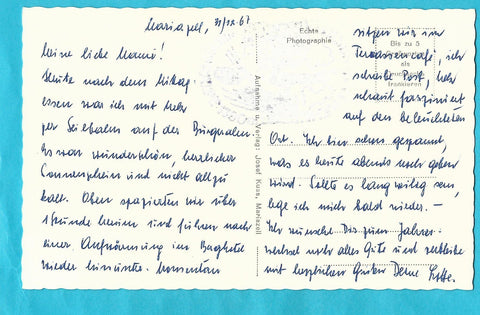 Mariazell, 31/12.67
Meine liebe Mama!
Heute nach dem Mittag-
essen war ich mit
per Seilbahn auf der Bürgeralm.
Es war wunderschön, herrlicher
Sonnenschein und nicht allzu
kalt. Oben spazierten wir über
1 Stunde herum und fuhren nach
einer Aufwärmung im Berghotel
wieder hinunter. Momentan
Echte
Photographie
Bis zu 5
als
frankieren
Aufnahme u. Verlag: Josef Kuss, Mariazell
sitzen wir im
Terrassencafé, ich
schreibe Post,
schaut fasziniert
auf den beleuchteten
Ort. Ich bin schon gespannt,
was es heute abends noch geben
wird. Sollte es langweilig sein,
lege ich mich bald nieder. –
Ich wünsche Dir zum Jahres-
wechsel noch alles Gute und verbleibe
mit herzlichen Grüßen Deine Lotte.